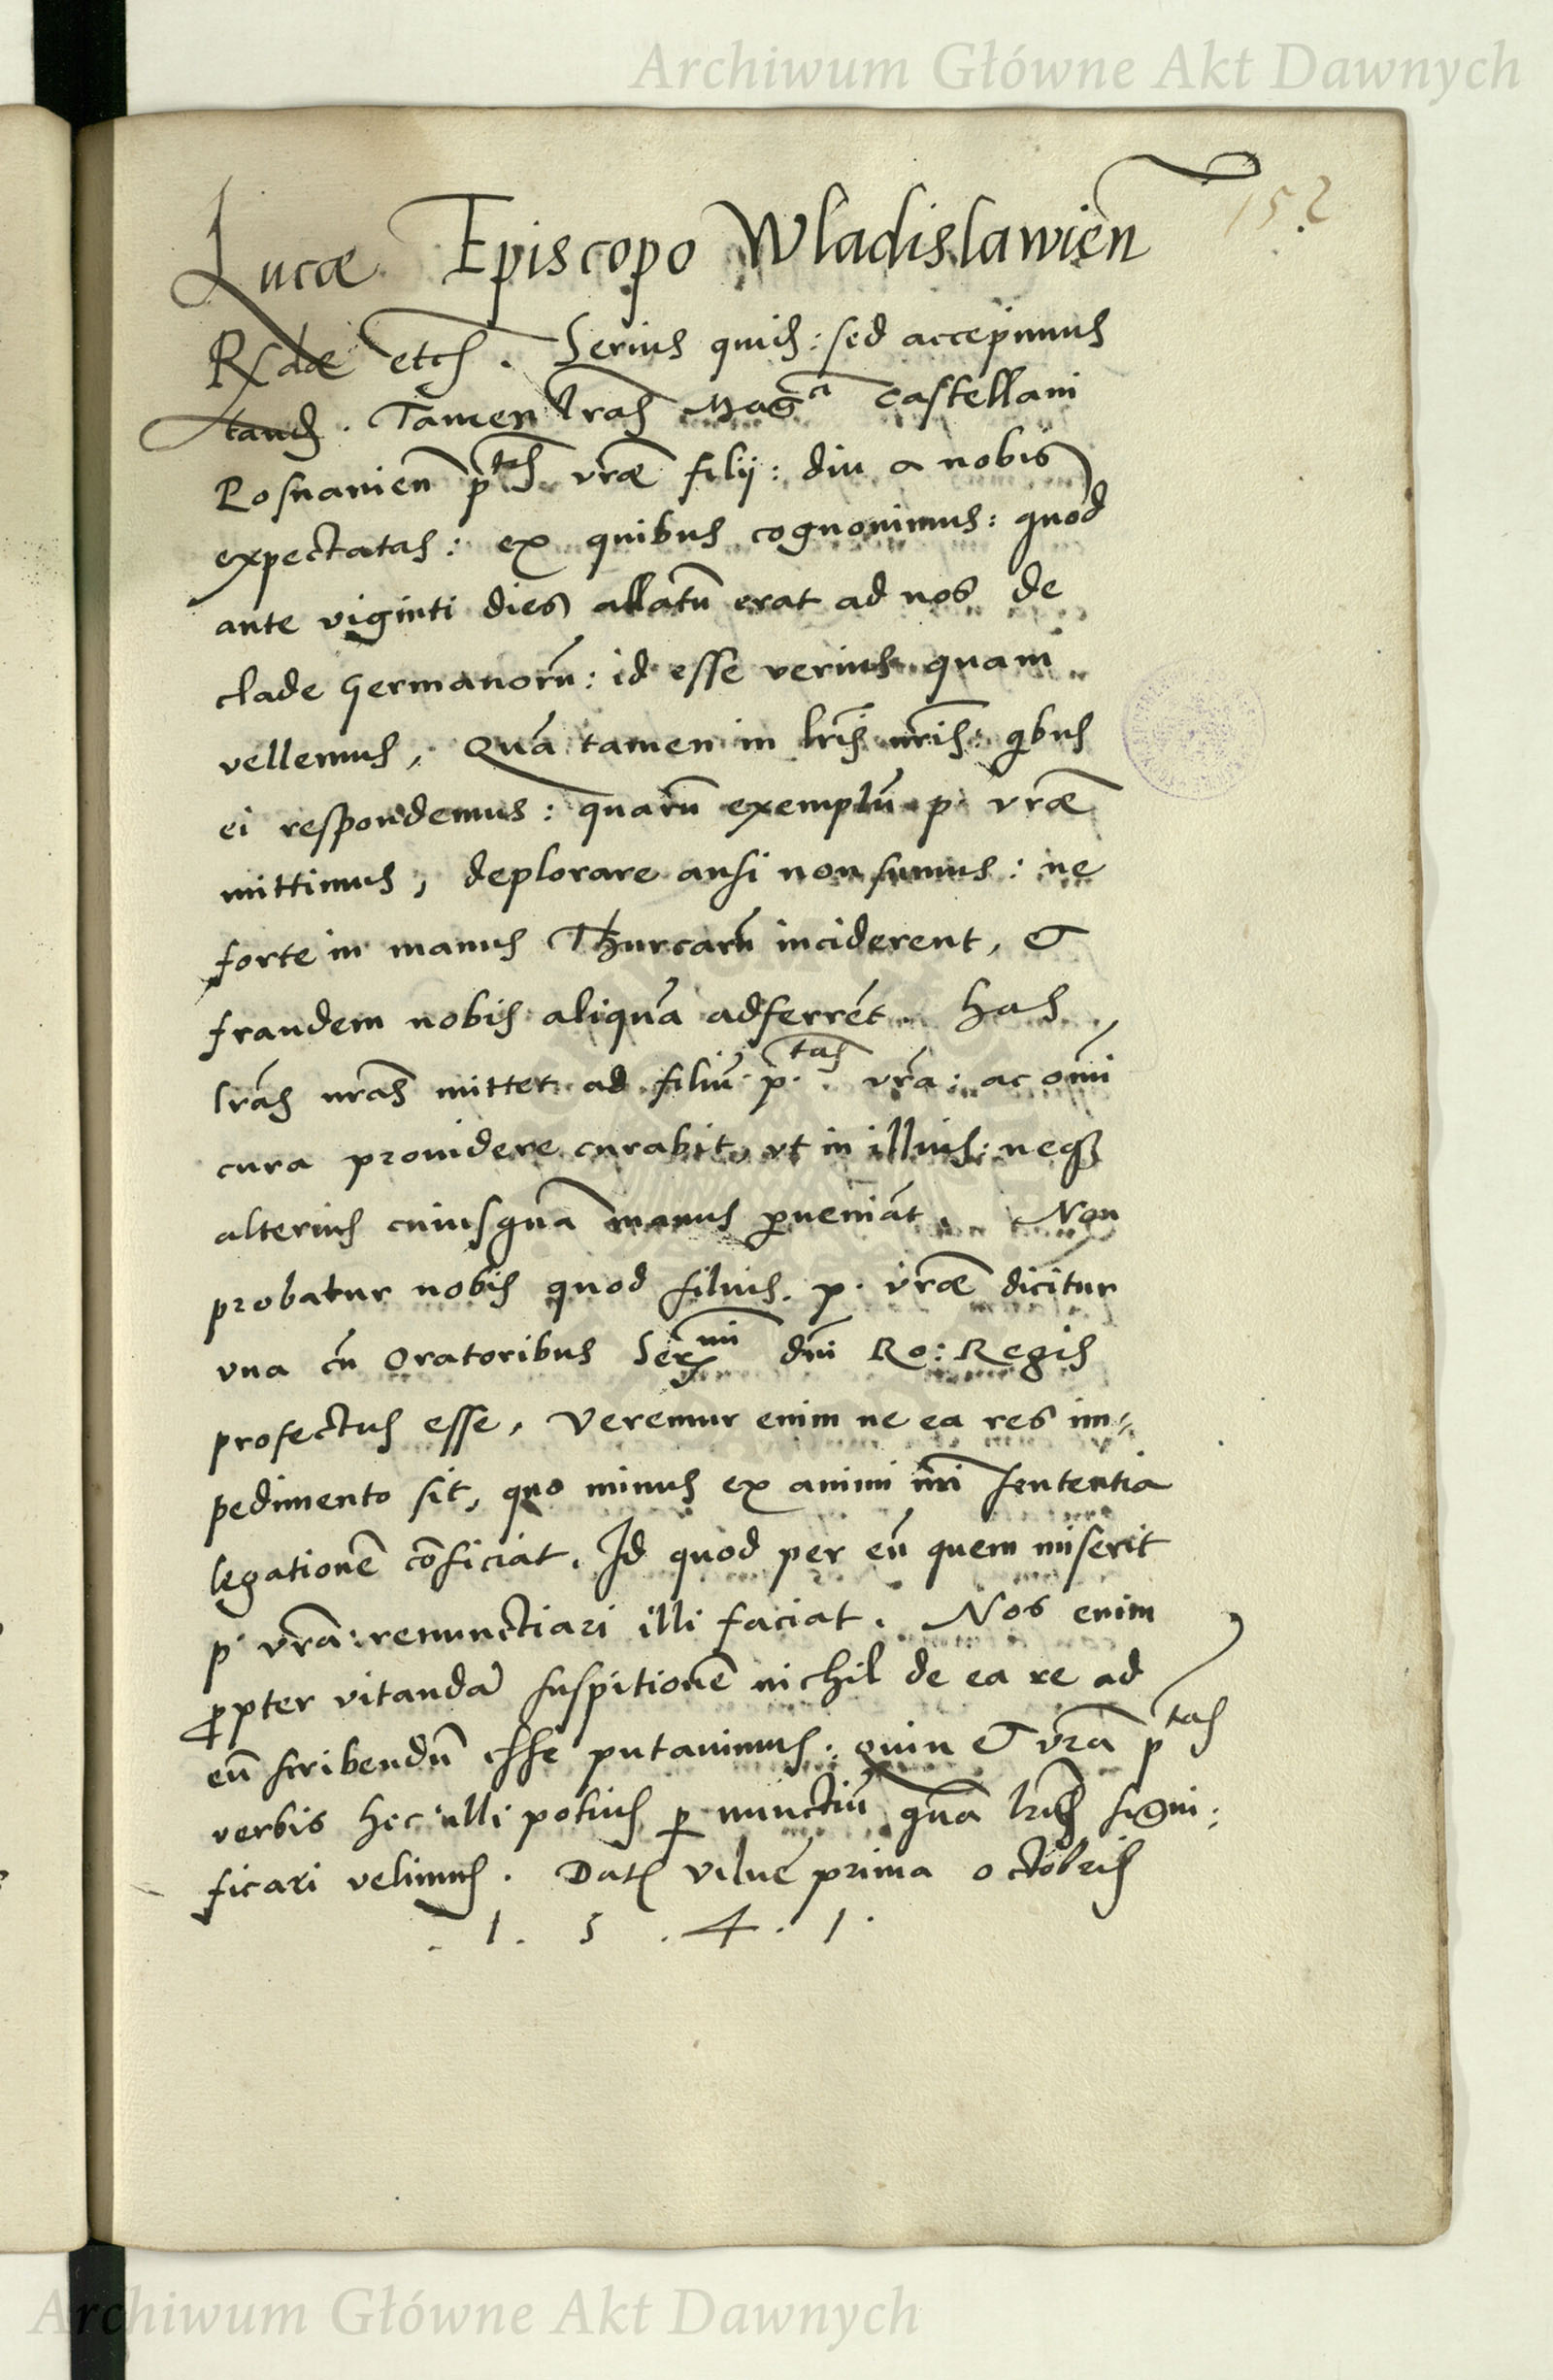 Archiwum Główne Akt Dawnych
152
Lucæ Episcopo Wladislawien̄
Rx̄dæ etc̄. Serius quid: sed accepimus
tand. Tamen lr̄as Mag.ci Castellani
Posnanien̄ p.tis vr̄æ filij: diu a nobis
expectatas: ex quibus cognouimus: quod
ante viginti dies allatū erat ad nos de
clade Germanorū: id esse verius quam
vellemus, Quā tamen in lr̄is nr̄is: qbus
ei respondemus: quarū exemplū p. vr̄æ
mittimus, deplorare ausi non sumus: ne
forte in manus Thurcarū inciderent, &
fraudem nobis aliquā adferrēt. Has
lr̄as nr̄as mittet ad filiū p.tas vr̄a: ac om̄i
cura prouidere curabit, vt in illius: neq3
alterius cuiusquā manus ꝑueniāt. Non
probatur nobis quod filius. p. vr̄æ dicitur
vna cū Oratoribus Ser.mi dn̄i Ro: Regis
profectus esse, Veremur enim ne ea res im=
pedimento sit, quo minus ex animi nr̄i sententia
legationē cōficiat. Id quod per eū quem miserit
p. vr̄a: renunctiari illi faciat. Nos enim
ꝓpter vitandā suspitionē nichil de ea re ad
eū scribendū esse putauimus: quin & vr̄a p.tas
verbis hec illi potius ꝑ nunctiū quā lr̄is signi:
ficari velimus. Dat̄ vilnē prima octobris
.1.5.4.1.
Archiwum Główne Akt Dawnych